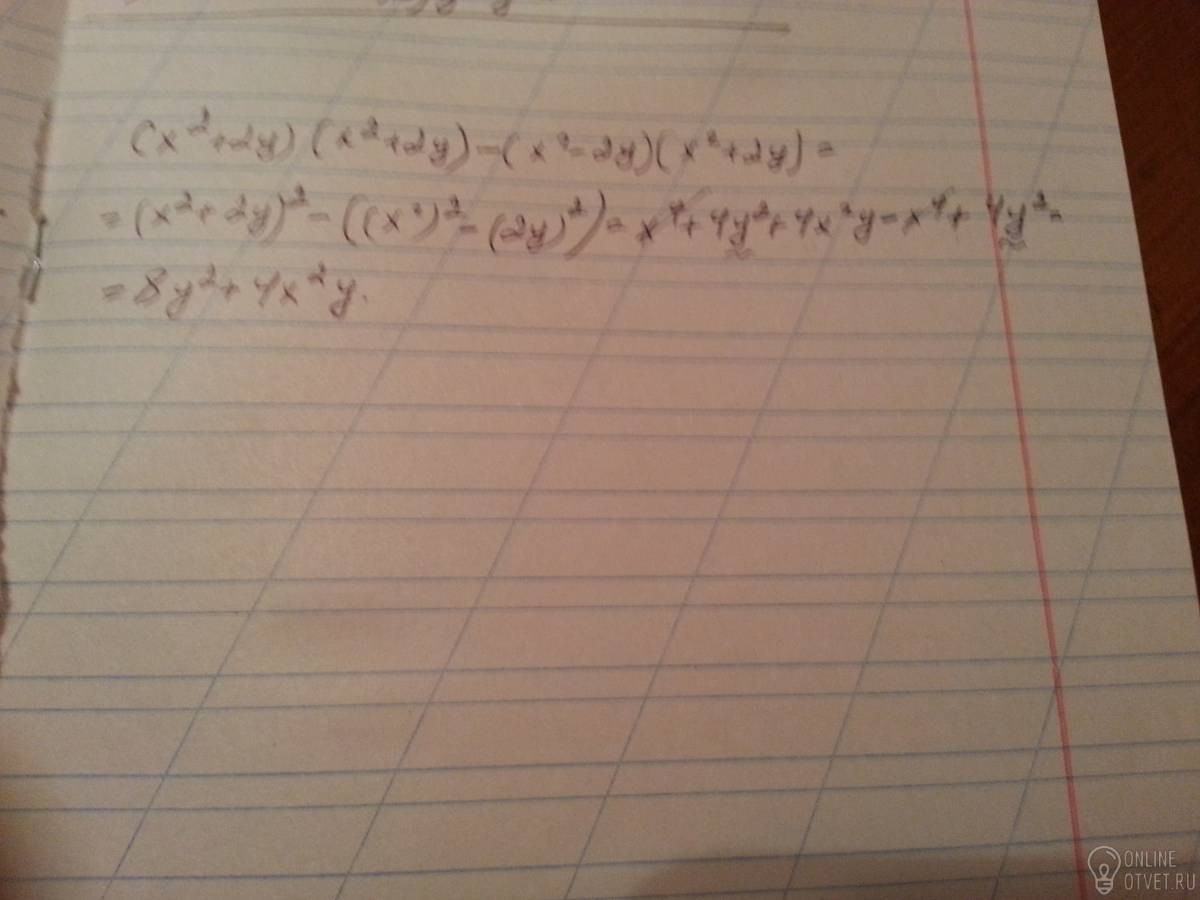 (x²+2y)(x²+2y)-(x²-2y)(x²+2y)=
=(x²+2y)²-((x²)²-(2y)²)=x⁴+4y²+4x²y-x⁴+4y²=
=8y²+4x²y.
ONLINE
OTVET.RU